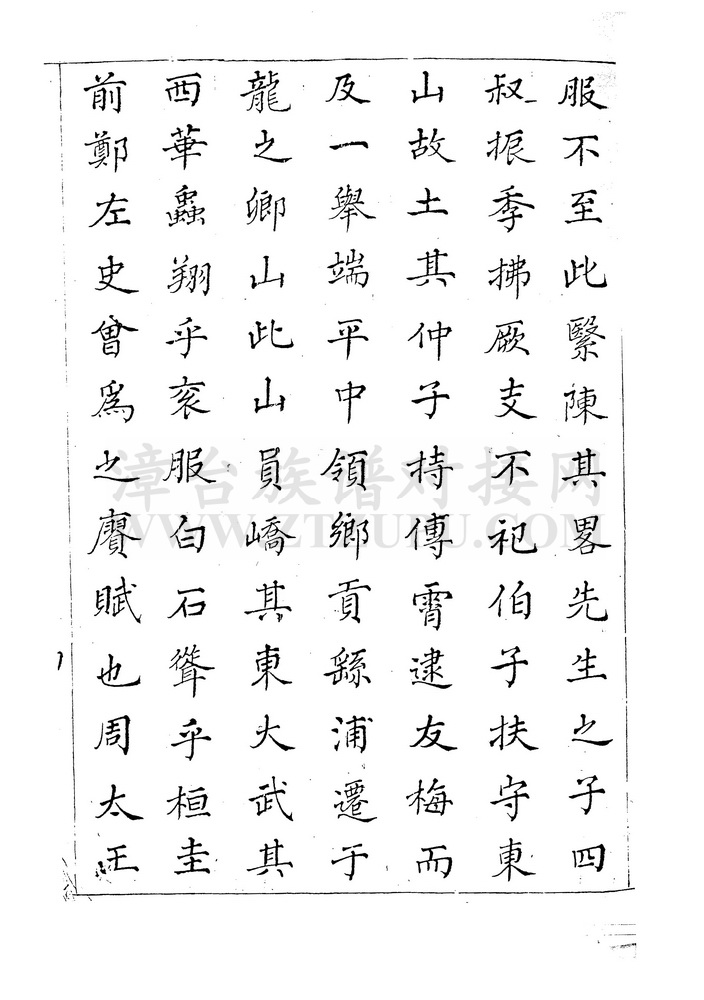 服不至此緊陳其畧先生之子四
叔振季拂厥支不祀伯子扶守東
山故土其仲子持傳霄逮友梅而
及一舉端平中領鄉貢繇浦遷于
龍之卿山此山員嶠其東大武其
西華蟲翔乎衮服白石聳乎桓圭
前鄭左史曾爲之賡賦也周太王
漳台族谱对接网
WWW.ZTZUPU.COM